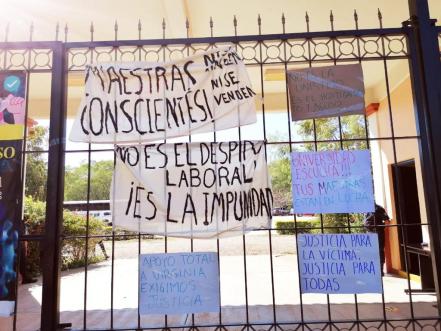 MAESTRAS
CONSCIENTES!
NI SE
VENDEN
NO ES EL DESPIDO
LABORAL,
¡ES LA IMPUNIDAD
UNIVERSIDAD
ESCUCHA!!!
TUS MAESTRAS
ESTAN EN LUCHA
APOYO TOTAL
A VIRGINIA
EXIGIMOS
JUSTICIA
JUSTICIA PARA
LA VÍCTIMA,
JUSTICIA PARA
TODAS